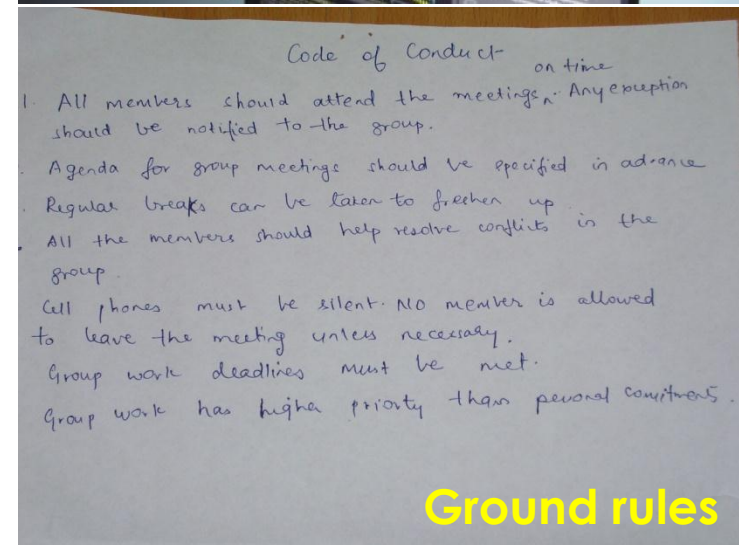 Code of Conduct
on time
1. All members should attend the meetings ^. Any exception
should be notified to the group.
. Agenda for group meetings should be specified in advance
. Regular breaks can be taken to freshen up
. All the members should help resolve conflicts in the
group.
Cell phones must be silent. No member is allowed
to leave the meeting unless necessary.
Group work deadlines must be met.
Group work has higher priority than personal comitments.
Ground rules